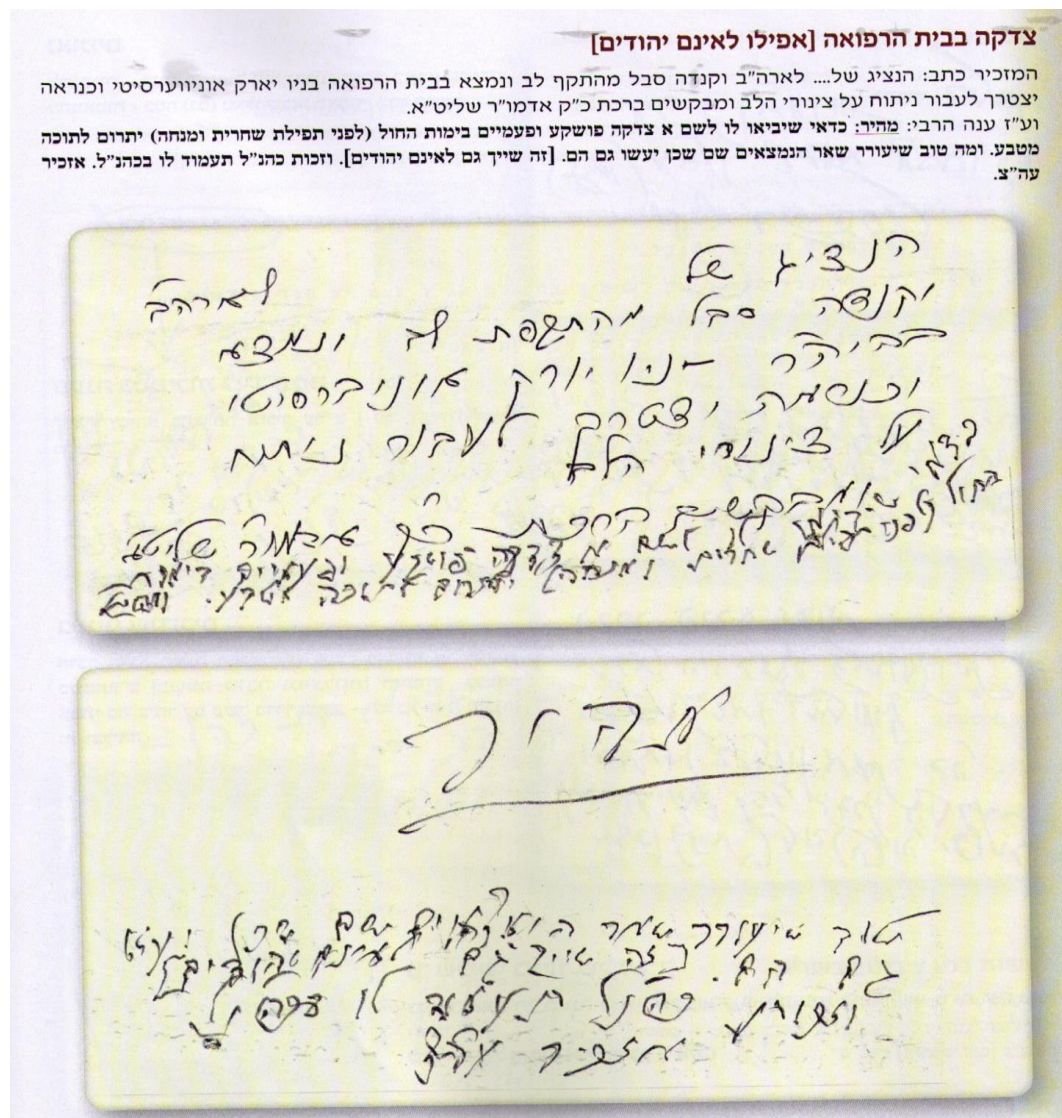 צדקה בבית הרפואה [אפילו לאינם יהודים]
המזכיר כתב: הנציג של.... לארה"ב וקנדה סבל מהתקף לב ונמצא בבית הרפואה בניו יארק אוניווערסיטי וכנראה
יצטרך לעבור ניתוח על צינורי הלב ומבקשים ברכת כ"ק אדמו"ר שליט"א.
וע"ז ענה הרבי: מהיר: כדאי שיביאו לו לשם א צדקה פושקע ופעמיים בימות החול (לפני תפילת שחרית ומנחה) יתרום לתוכה
מטבע. ומה טוב שיעורר שאר הנמצאים שם שכן יעשו גם הם. [זה שייך גם לאינם יהודים]. וזכות כהנ"ל תעמוד לו בכהנ"ל. אזכיר
עה"צ.
הנציג של
לארהב
וקנדה סבל מהתקפת לב ונמצא
בביה"ר בניו יורק אוניברסיטי
וכנראה יצטרך לעבור ניתוח
על צינורי הלב
ומבקשים ברכת כ"ק אדמור שליטא
לשם א צדקה פושקע ופעמיים בימות
החול לפני תפילת שחרית ומנחה יתרום לתוכה מטבע.
מהיר
טוב שיעורר שאר הנמצאים שם שכן יעשו
גם הם. [זה שייך גם לאינם יהודים]
וזכות כהנ"ל תעמוד לו
אזכיר עה"צ